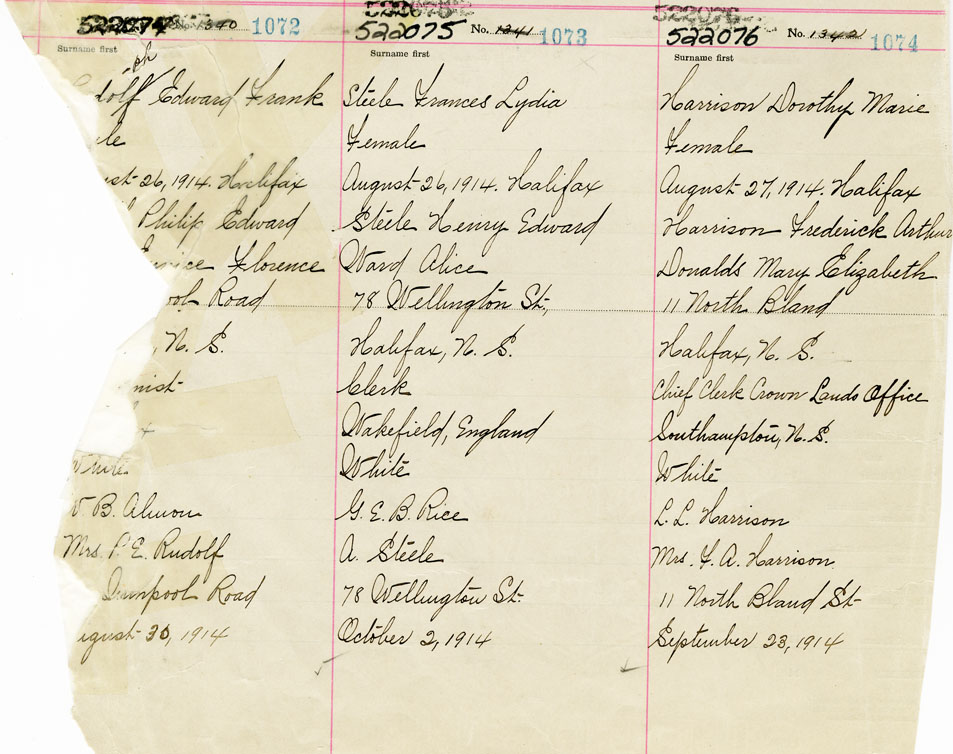 522074 No. 1340 1072
Surname first
ph
dolf Edward Frank
le
ust 26, 1914. Halifax
Philip Edward
Florence
ool Road
, N. S.
nist
White
B. Almon
Mrs. P. E. Rudolf
Quinpool Road
ugust 30, 1914
522075 No. 1341 1073
Surname first
Steele Frances Lydia
Female
August 26, 1914. Halifax
Steele Henry Edward
Ward Alice
78 Wellington St.,
Halifax, N. S.
Clerk
Wakefield, England
White
G. E. B. Rice
A. Steele
78 Wellington St.
October 2, 1914
522076
522076 No. 1342 1074
Surname first
Harrison Dorothy Marie
Female
August 27, 1914. Halifax
Harrison Frederick Arthur
Donalds Mary Elizabeth
11 North Bland
Halifax, N. S.
Chief Clerk Crown Lands Office
Southampton, N. S.
White
L. L. Harrison
Mrs. F. A. Harrison
11 North Bland St
September 23, 1914